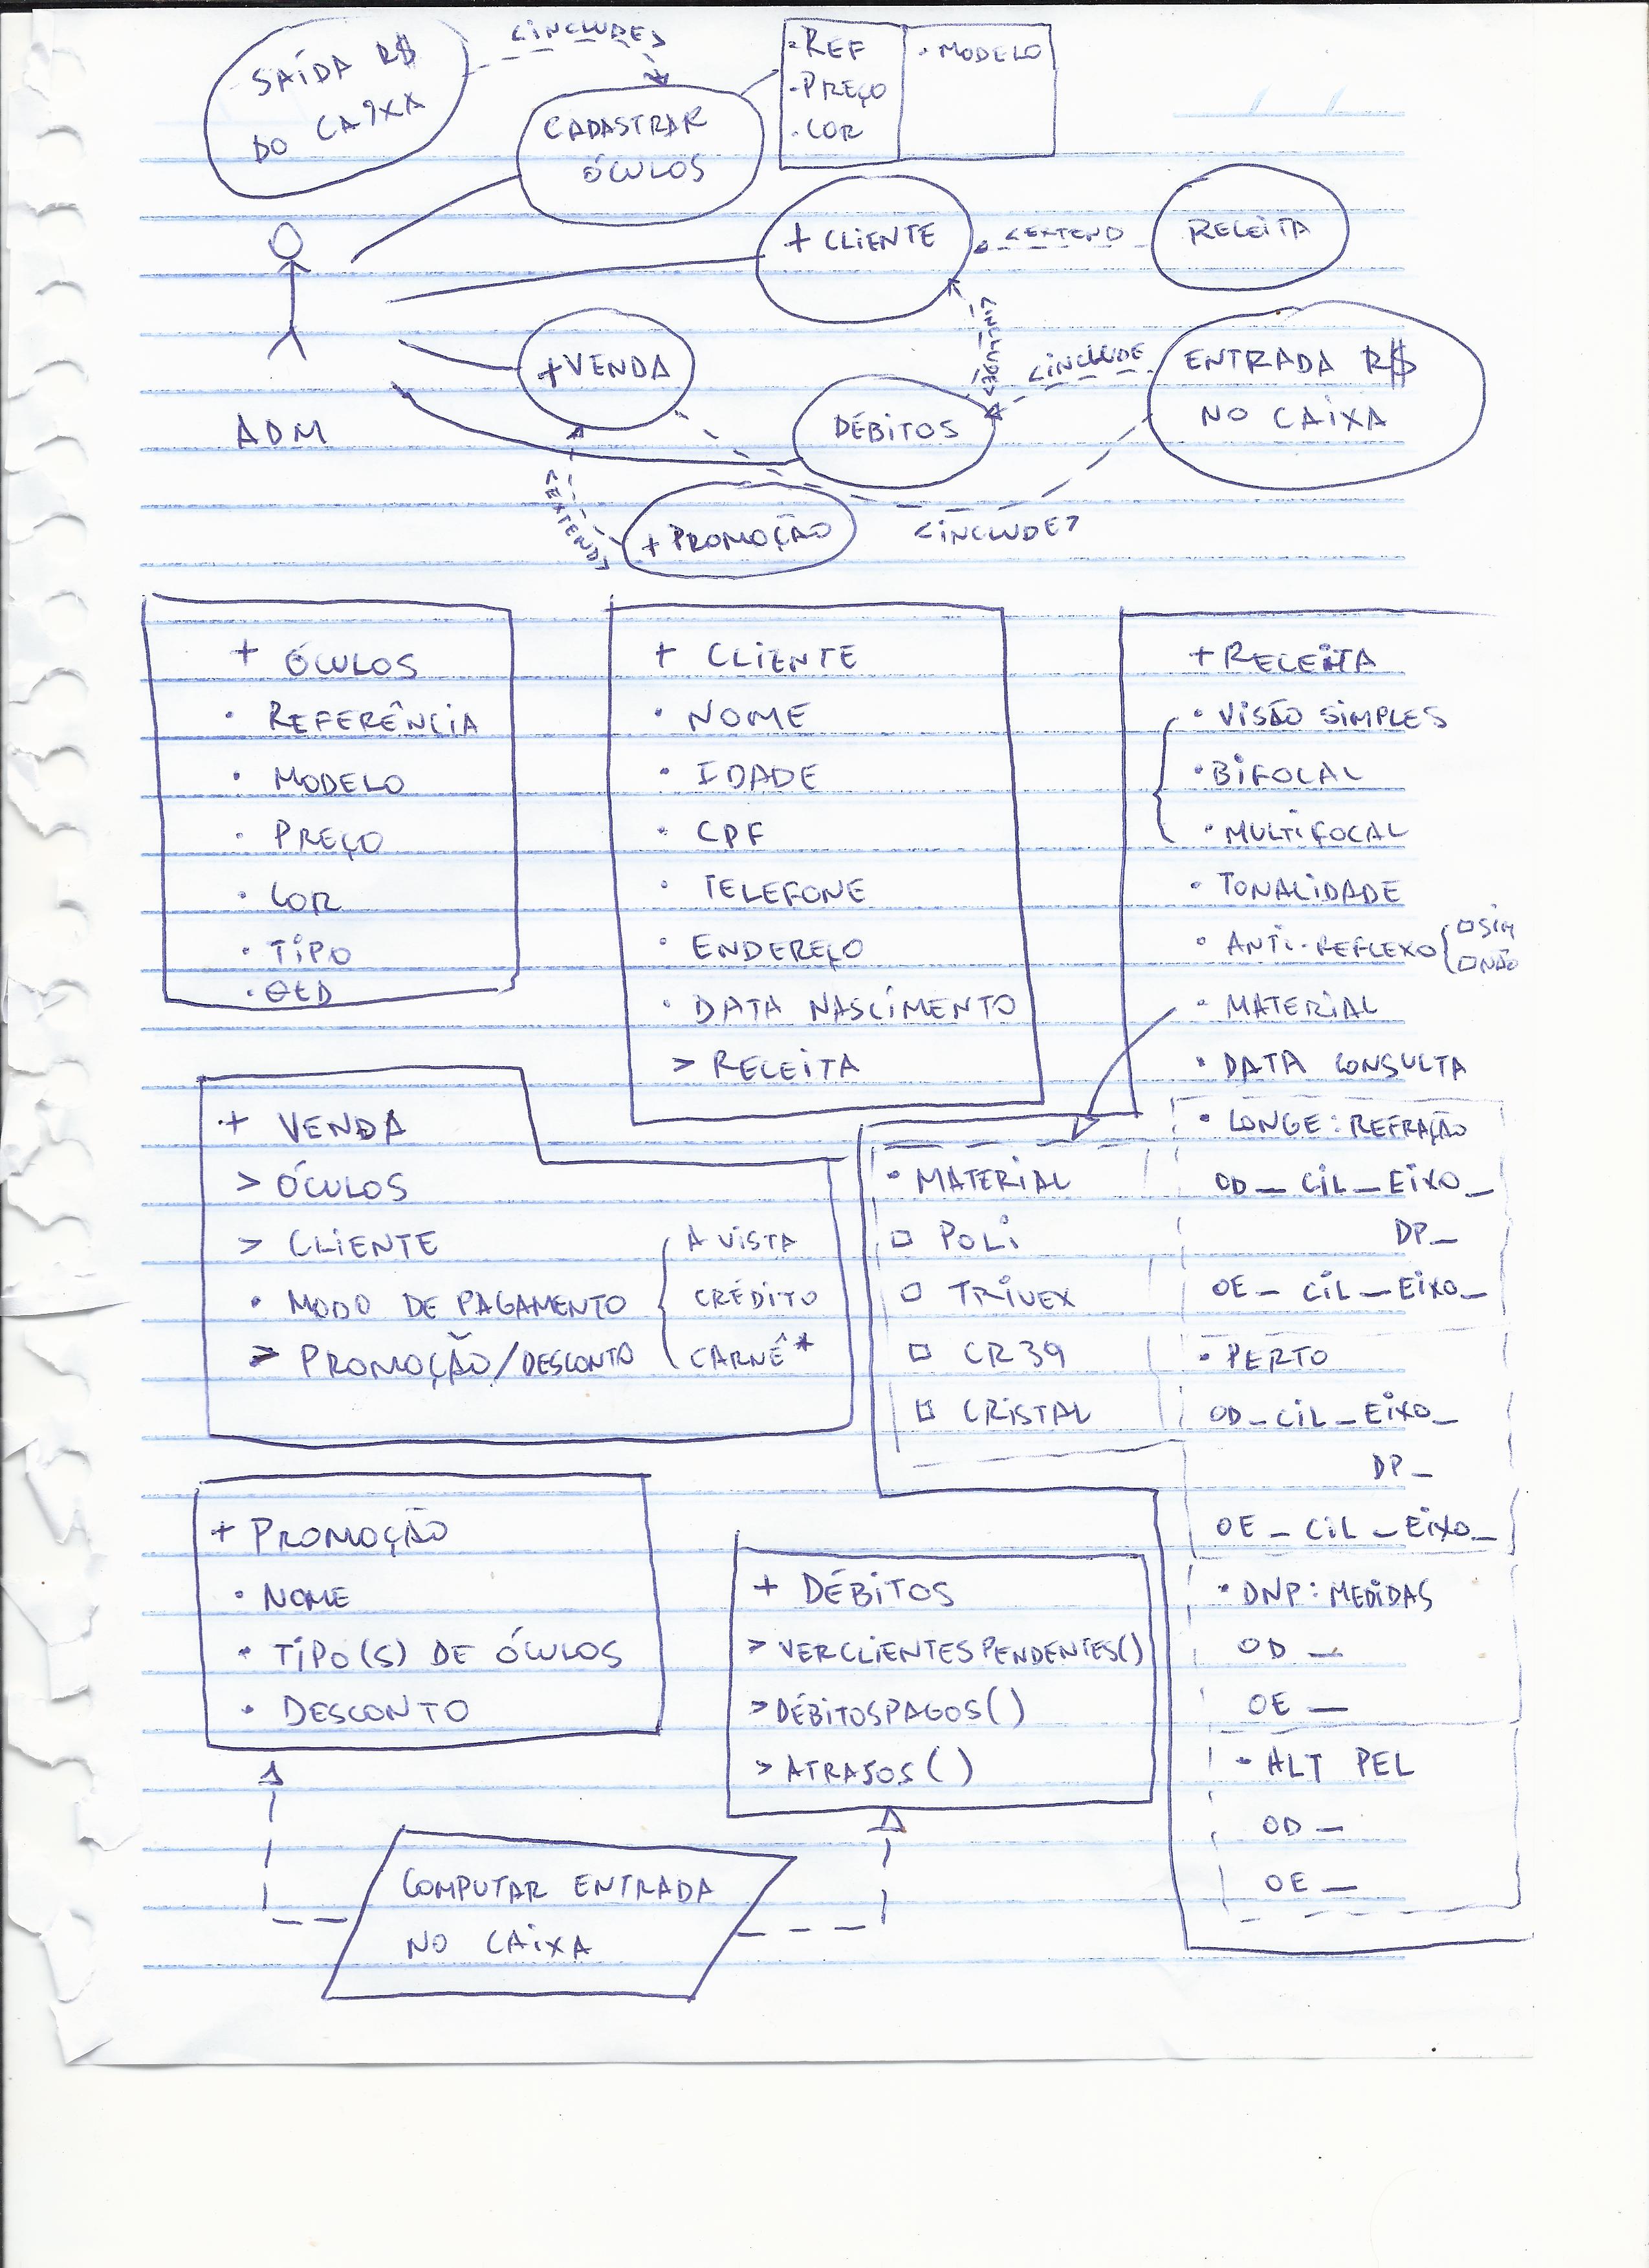 SAÍDA R$
DO CAIXA
<INCLUDE>
CADASTRAR
ÓCULOS
- REF
- PREÇO
. COR
. MODELO
+ CLIENTE
<EXTEND
RECEITA
ADM
+ VENDA
<INCLUDE>
<INCLUDE
DÉBITOS
ENTRADA R$
NO CAIXA
<EXTEND>
+ PROMOÇÃO
<INCLUDE>
+ ÓCULOS
• REFERÊNCIA
• MODELO
• PREÇO
• COR
• TIPO
• QTD
+ CLIENTE
• NOME
• IDADE
• CPF
• TELEFONE
• ENDEREÇO
• DATA NASCIMENTO
> RECEITA
+ RECEITA
• VISÃO SIMPLES
• BIFOCAL
• MULTIFOCAL
• TONALIDADE
• ANTI-REFLEXO { □ SIM
□ NÃO
• MATERIAL
• DATA CONSULTA
• LONGE: REFRAÇÃO
OD _ CIL _ EIXO _
DP _
OE _ CIL _ EIXO _
• PERTO
OD _ CIL _ EIXO _
DP _
OE _ CIL _ EIXO _
• DNP: MEDIDAS
OD _
OE _
• ALT PEL
OD _
OE _
• MATERIAL
□ POLI
□ TRIVEX
□ CR 39
□ CRISTAL
+ VENDA
> ÓCULOS
> CLIENTE
• MODO DE PAGAMENTO
> PROMOÇÃO/DESCONTO
A VISTA
CRÉDITO
CARNÊ *
+ PROMOÇÃO
• NOME
• TIPO(S) DE ÓCULOS
• DESCONTO
+ DÉBITOS
> VERCLIENTESPENDENTES()
> DÉBITOSPAGOS()
> ATRASOS()
COMPUTAR ENTRADA
NO CAIXA